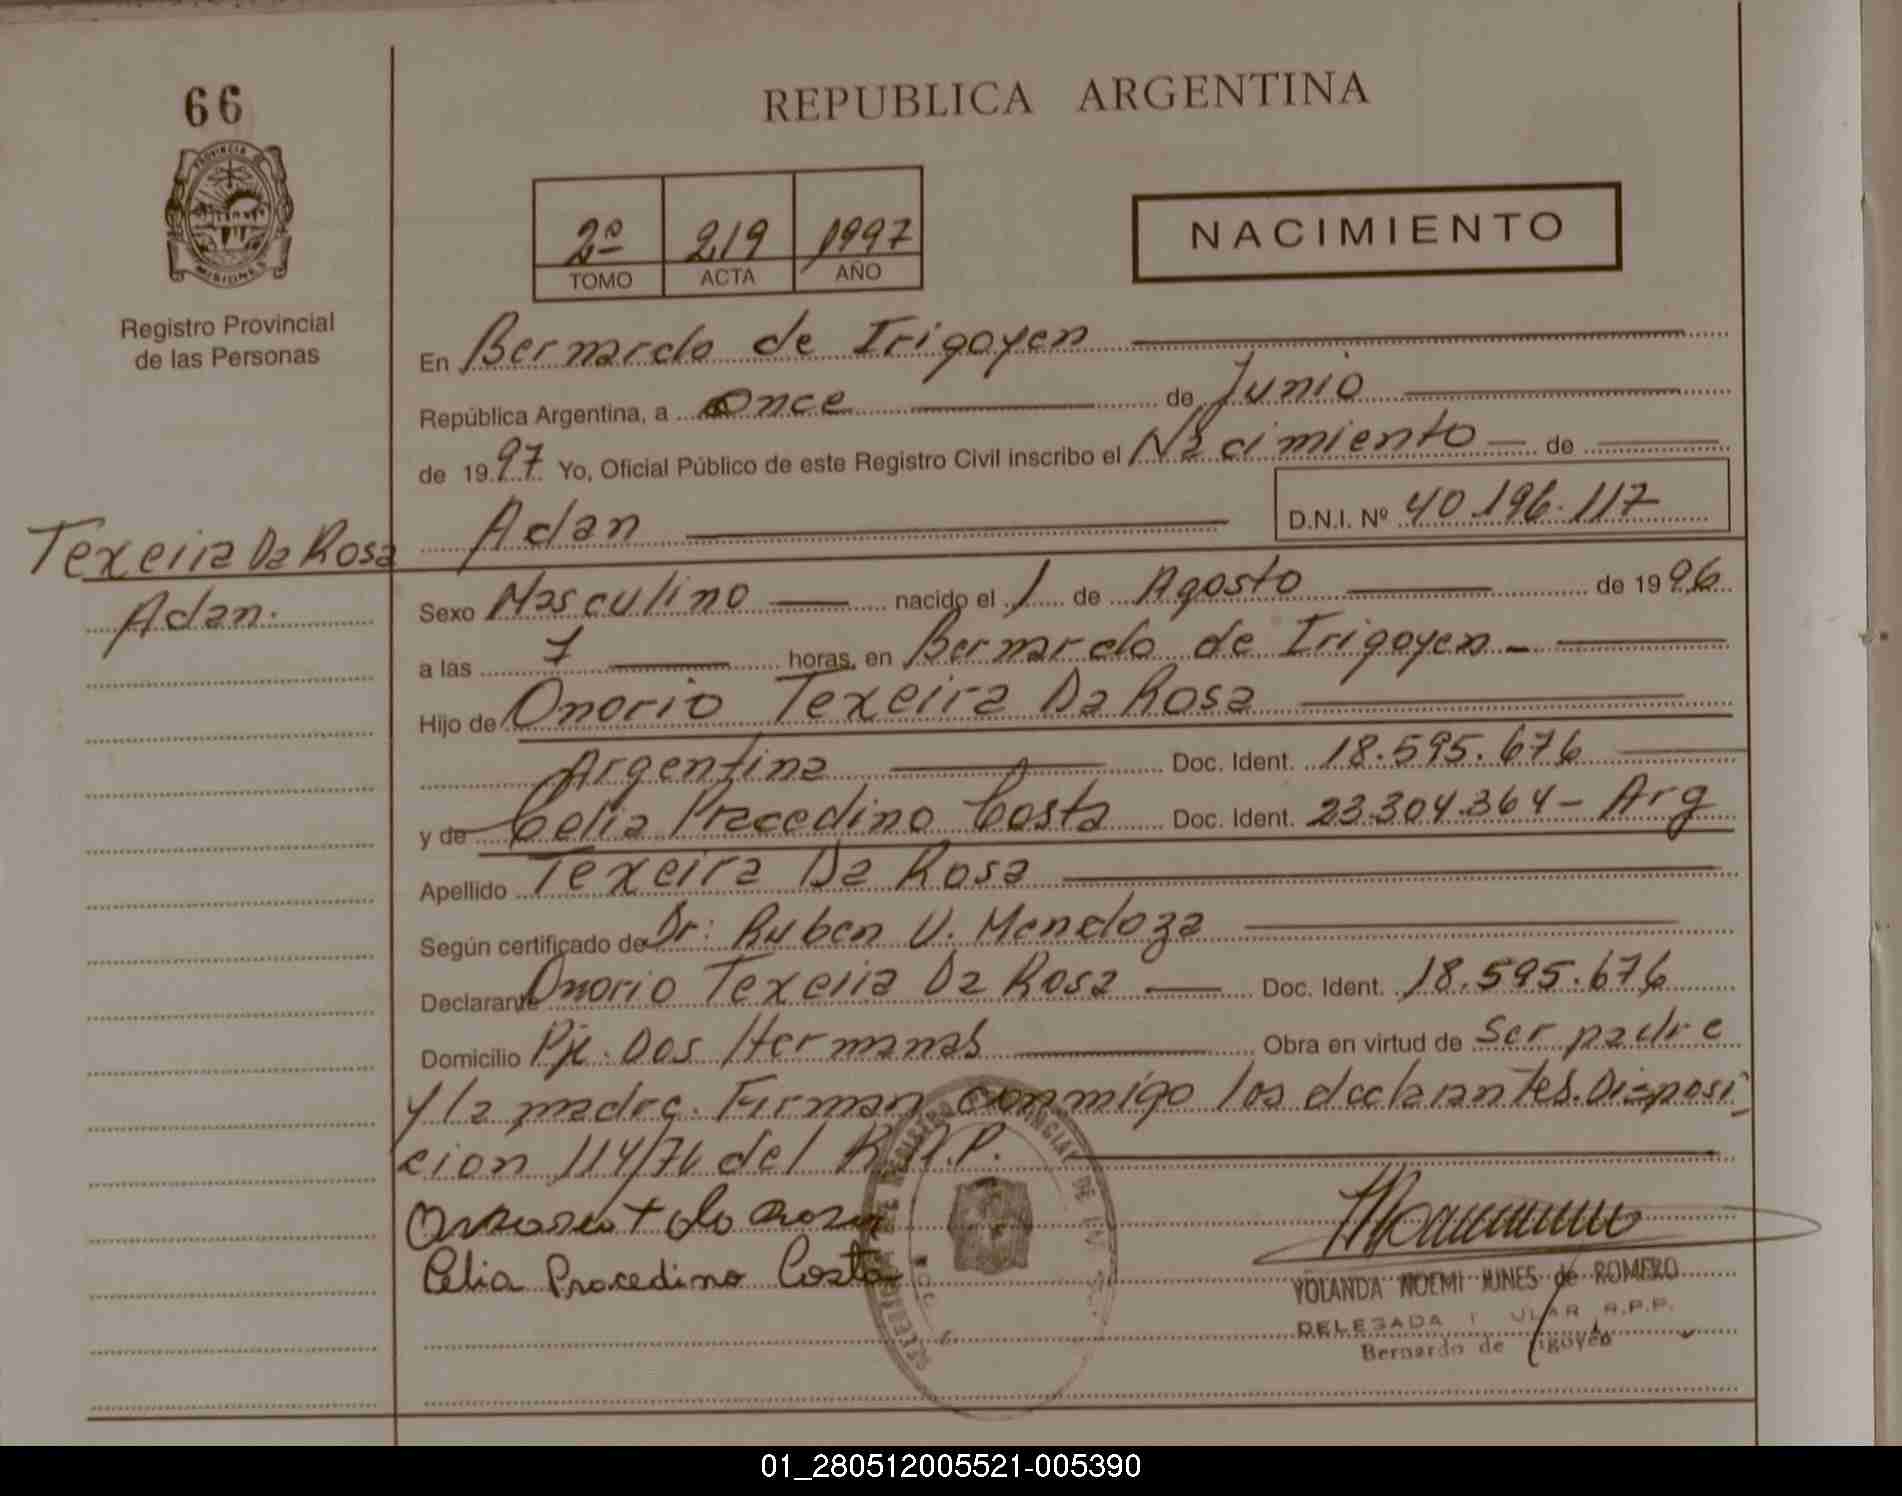 66
REPUBLICA ARGENTINA
PROVINCIA DE
MISIONES
Registro Provincial
de las Personas
2º 219 1997
TOMO ACTA AÑO
NACIMIENTO
En Bernardo de Irigoyen
República Argentina, a once de Junio
de 1997 Yo, Oficial Público de este Registro Civil inscribo el Nacimiento de
Adan D.N.I. Nº 40.196.117
Texeira Da Rosa
Adan.
Sexo Masculino nacido el 1 de Agosto de 1996
a las 7 horas, en Bernardo de Irigoyen -
Hijo de Onorio Texeira Da Rosa
Argentina Doc. Ident. 18.595.676
y de Celia Precedino Costa Doc. Ident. 23.304.364 - Arg
Apellido Texeira Da Rosa
Según certificado de Dr: Ruben V. Mendoza
Declarante Onorio Texeira Da Rosa Doc. Ident. 18.595.676
Domicilio Pje. Dos Hermanas Obra en virtud de Ser padre
y la madre. Firman conmigo los declarantes. Disposi
cion 114/76 del R.P.P.
Celia Procedino Costa
YOLANDA NOEMI JUNES de ROMERO
DELEGADA R.P.P.
Bernardo de Irigoyen
01_280512005521-005390